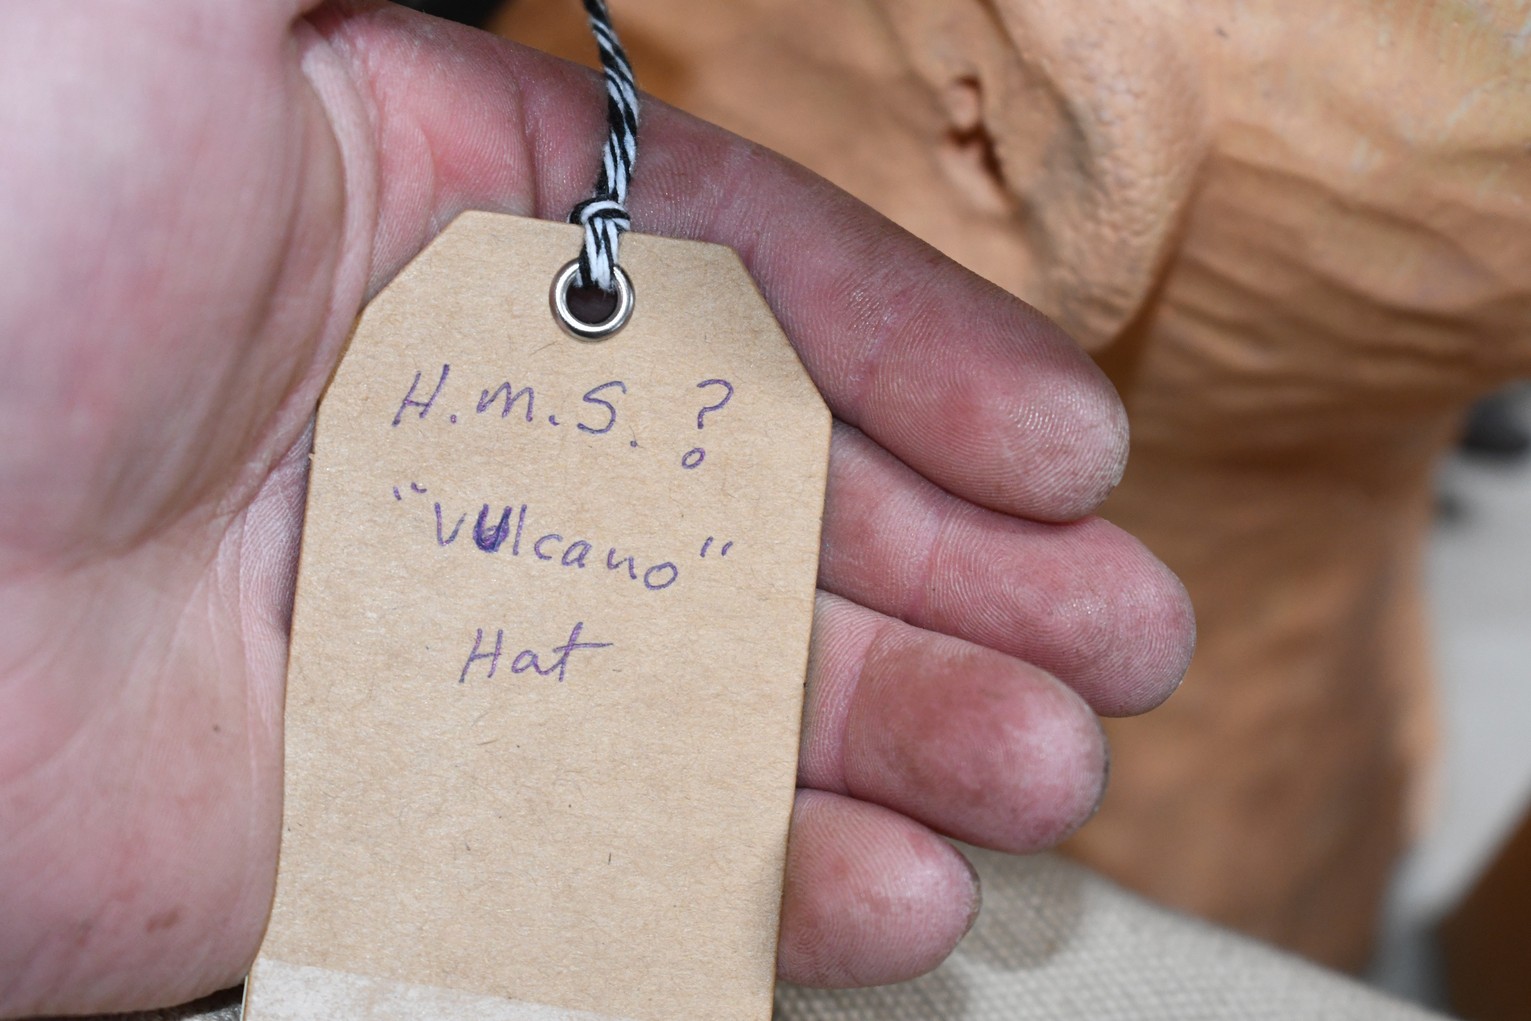 H.M.S. ?
"Vulcano"
Hat